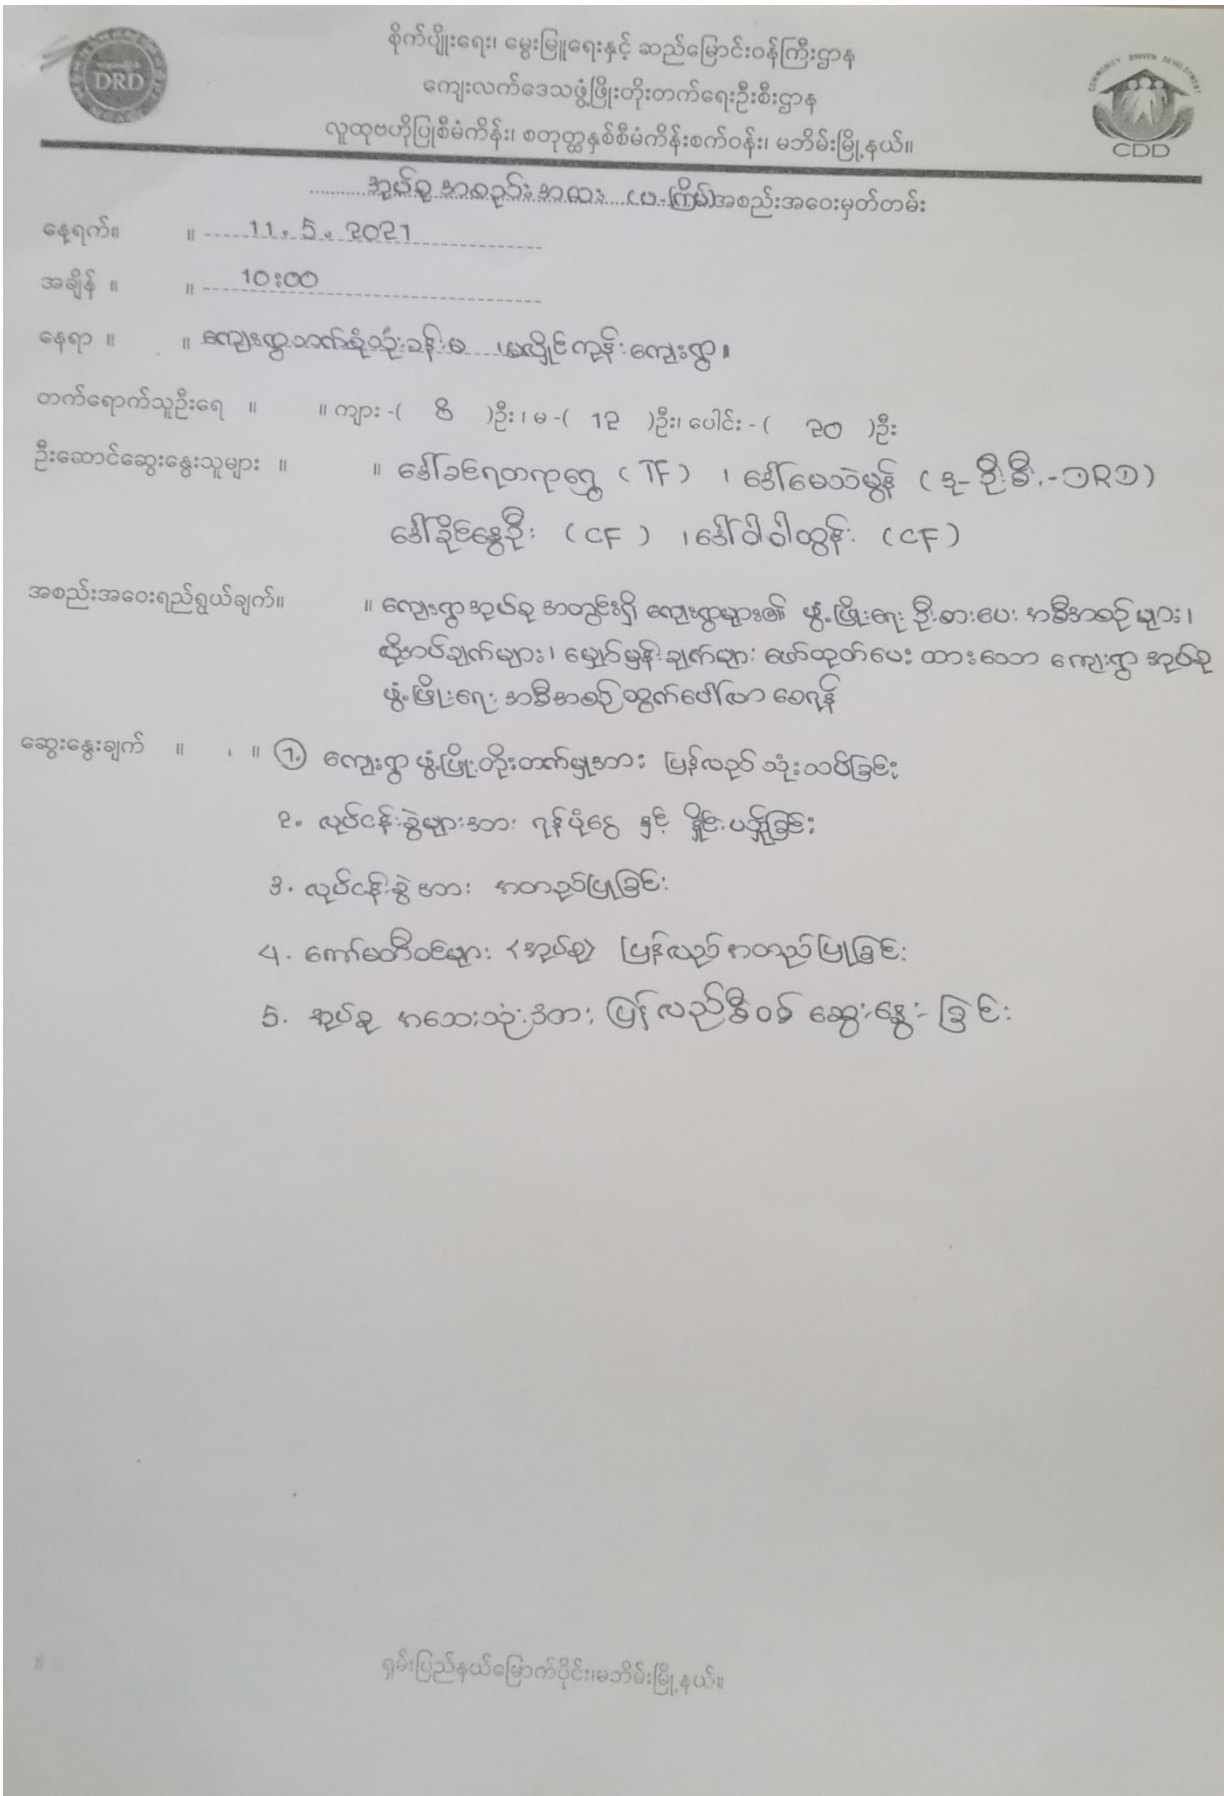 စိုက်ပျိုးရေး၊ မွေးမြူရေးနှင့် ဆည်မြောင်းဝန်ကြီးဌာန
ကျေးလက်ဒေသဖွံ့ဖြိုးတိုးတက်ရေးဦးစီးဌာန
လူထုဗဟိုပြုစီမံကိန်း၊ စတုတ္ထနှစ်စီမံကိန်းစက်ဝန်း၊ မဘိမ်းမြို့နယ်။
DRD
COMMUNITY DRIVEN DEVELOPMENT
CDD
အုပ်စု အစည်းအဝေး (ပ-ကြိမ်) အစည်းအဝေးမှတ်တမ်း
နေ့ရက်။ ။ 11.5.2021
အချိန် ။ ။ 10:00
နေရာ ။ ။ ကျေးရွာ ကျေးရွာ။
တက်ရောက်သူဦးရေ ။ ။ ကျား -( 8 )ဦး ၊ မ -( 12 )ဦး၊ ပေါင်း - ( 20 )ဦး
ဦးဆောင်ဆွေးနွေးသူများ ။ ။ ဒေါ်ခင်ရတနာရွှေ ( TF ) ၊ ဒေါ်မေသဲမွန် ( ဒု-ဦးစီး-DRD )
ဒေါ်ခိုင်နွေဦး ( CF ) ၊ ဒေါ်ဝါဝါထွန်း ( CF )
အစည်းအဝေးရည်ရွယ်ချက်။ ။ ကျေးရွာအုပ်စု အတွင်းရှိ ကျေးရွာများ၏ ဖွံ့ဖြိုးရေး ဦးစားပေး အစီအစဉ်များ ၊
လိုအပ်ချက်များ ၊ မျှော်မှန်းချက်များ ဖော်ထုတ်ပေး ထားသော ကျေးရွာ အုပ်စု
ဖွံ့ဖြိုးရေး အစီအစဉ် ထွက်ပေါ်လာ စေရန်
ဆွေးနွေးချက် ။ ။ 1. ကျေးရွာ ဖွံ့ဖြိုးတိုးတက်မှုအား ပြန်လည် သုံးသပ်ခြင်း
2. လုပ်ငန်းခွဲများအား ရန်ပုံငွေ နှင့် နှိုင်းယှဉ်ခြင်း
3. လုပ်ငန်းခွဲအား အတည်ပြုခြင်း
4. ကော်မတီဝင်များ <အုပ်စု> ပြန်လည် အတည်ပြုခြင်း
5. အုပ်စု အသေးသုံးအား ပြန်လည်စိစစ် ဆွေးနွေးခြင်း
ရှမ်းပြည်နယ်မြောက်ပိုင်း၊မဘိမ်းမြို့နယ်။